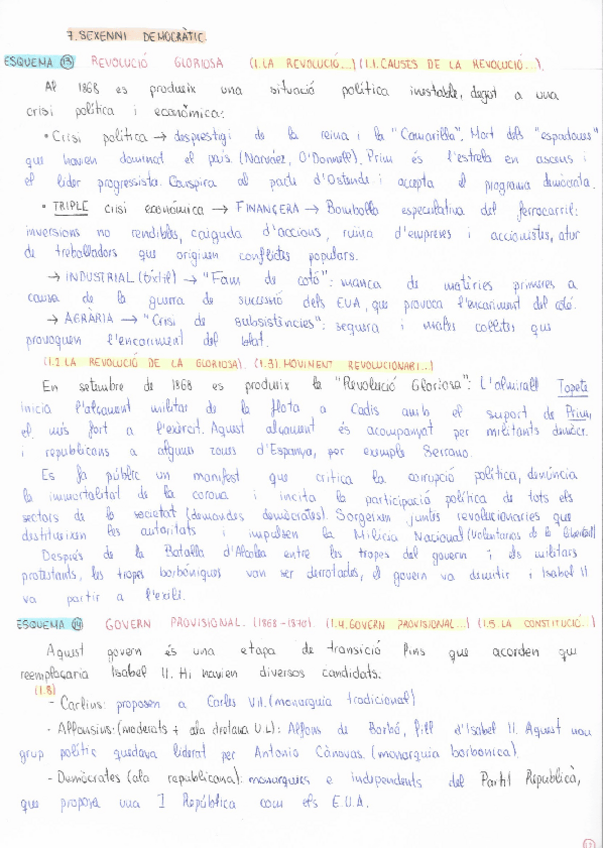 7. SEXENNI DEMOCRÀTIC.
ESQUEMA 13 REVOLUCIÓ GLORIOSA (1. LA REVOLUCIÓ...) (1.1. CAUSES DE LA REVOLUCIÓ...).
Al 1868 es produeix una situació política inestable, degut a una
crisi política i econòmica:
• Crisi política → desprestigi de la reina i la "Camarilla". Mort dels "espadones"
que havien dominat el país. (Narváez, O'Donnell). Prim és l'estrela en ascens i
el líder progressista. Conspira al pacte d'Ostende i accepta el programa demòcrata.
• TRIPLE crisi econòmica → FINANCERA → Bombolla especulativa del ferrocarril:
inversions no rendibles, caiguda d'accions, ruïna d'empreses i accionistes, atur
de treballadors que originen conflictes populars.
→ INDUSTRIAL (tèxtil) → "Fam de cotó": manca de matèries primeres a
causa de la guerra de successió dels EUA, que provoca l'encariment del cotó.
→ AGRÀRIA → "Crisi de subsistències": sequera i males collites que
provoquen l'encariment del blat.
(1.2 LA REVOLUCIÓ DE LA GLORIOSA). (1.3). MOVIMENT REVOLUCIONARI...)
En setembre de 1868 es produeix la "Revolució Gloriosa": L'almirall Topete
inicia l'alçament militar de la flota a Cadis amb el suport de Prim,
el més fort a l'exèrcit. Aquest alçament és acompanyat per militants demòcr.
i republicans a algunes zones d'Espanya, per exemple Serrano.
Es fa públic un manifest que critica la corrupció política, denúncia
la immortalitat de la corona i incita la participació política de tots els
sectors de la societat (demandes demòcrates). Sorgeixen juntes revolucionaries que
destitueixen les autoritats i impulsen la Milícia Nacional (Voluntarios de la libertad)
Després de la Batalla d'Alcolea entre les tropes del govern i els militars
protestants, les tropes borbòniques van ser derrotades, el govern va dimitir i Isabel II
va partir a l'exili.
ESQUEMA 14 GOVERN PROVISIONAL. (1868-1870). (1.4. GOVERN PROVISIONAL...) (1.5. LA CONSTITUCIÓ...)
Aquest govern és una etapa de transició fins que acorden que
reemplaçaria Isabel II. Hi havien diversos candidats.
(1.8)
- Carlins: proposen a Carles VII. (monarquia tradicional)
- Alfonsins: (moderats + ala dretana U.L): Alfons de Borbó, fill d'Isabel II. Aquest nou
grup polític quedava liderat per Antonio Cànovas. (monarquia borbonica).
- Demòcrates (ala republicana): monarquies e independents del Partit Republicà,
que proposa una I República com els E.U.A.